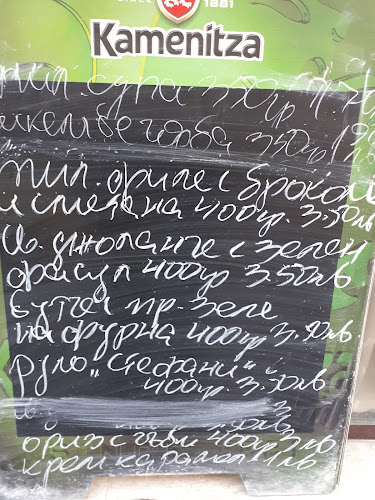 SINCE 1881
Kamenitza
пил. супа 350гр
шкембе чорба 350гр
пил. филе с броколи
и сметана 400гр. 3.50лв
св. джолан с зелен
фасул 400гр 3.50лв
бутче пр. зеле
на фурна 400гр 3.90лв.
руло "Стефани"
400гр. 3.50лв
ориз с гъби 400гр 3лв
крем карамел 1лв